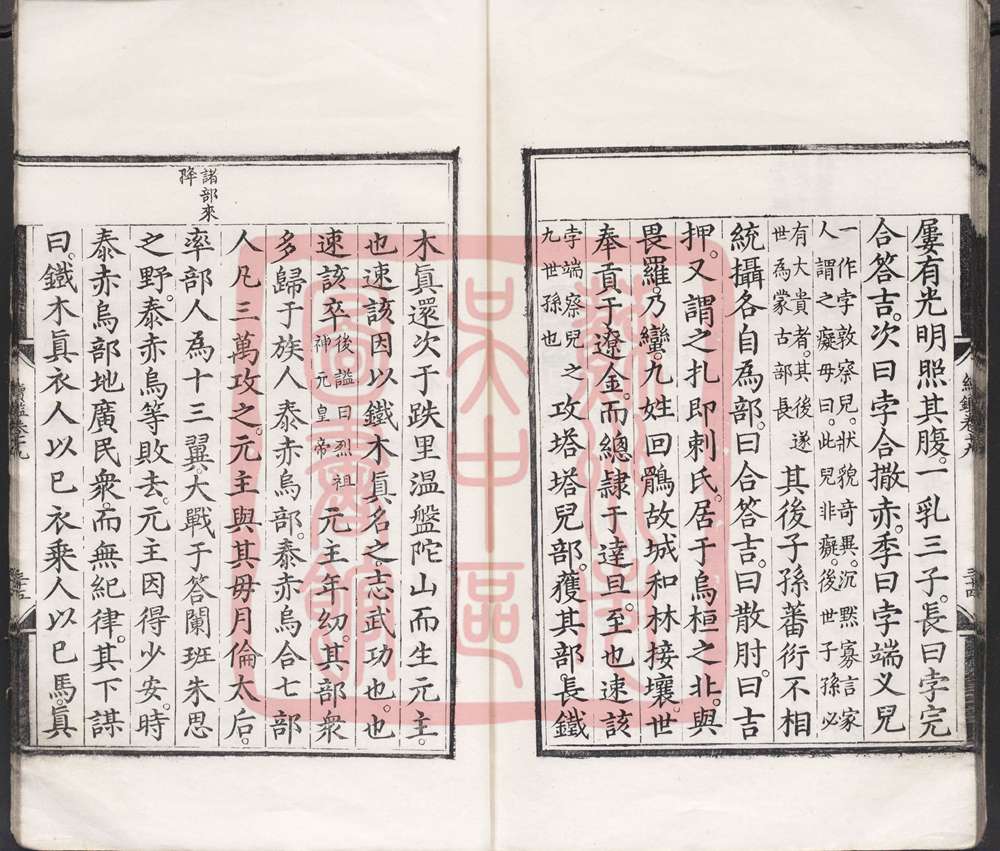 屢有光明照其腹。一乳三子。長曰孛完
合答吉。次曰孛合撒赤。季曰孛端义兒
一作孛敦察兒。狀貌奇異。沉默寡言家
人謂之癡。毋曰。此兒非癡。後世子孫必
有大貴者。其後遂
世為蒙古部長
其後子孫蕃衍不相
統攝各自為部。曰合答吉。曰散肘。曰吉
押。又謂之扎即刺氏。居于烏桓之北。與
畏羅乃蠻。九姓回鶻故城和林接壤。世
奉貢于遼金。而總隷于達旦。至也速該
孛端察兒之
九世孫也
攻塔塔兒部。獲其部長鐵
三十四
諸部來
降
木眞還次于跌里温盤陀山而生元主。
也速該因以鐵木眞名之。志武功也。也
速該卒
後諡曰烈祖
神元皇帝
元主年幼。其部衆
多歸于族人泰赤烏部。泰赤烏合七部
人凡三萬攻之。元主與其毋月倫太后。
率部人為十三翼。大戰于答闌班朱思
之野。泰赤烏等敗去。元主因得少安。時
泰赤烏部地廣民衆。而無紀律。其下謀
曰。鐵木眞衣人以巳衣乘人以巳馬。眞
蘇州市
吳中區
圖書館